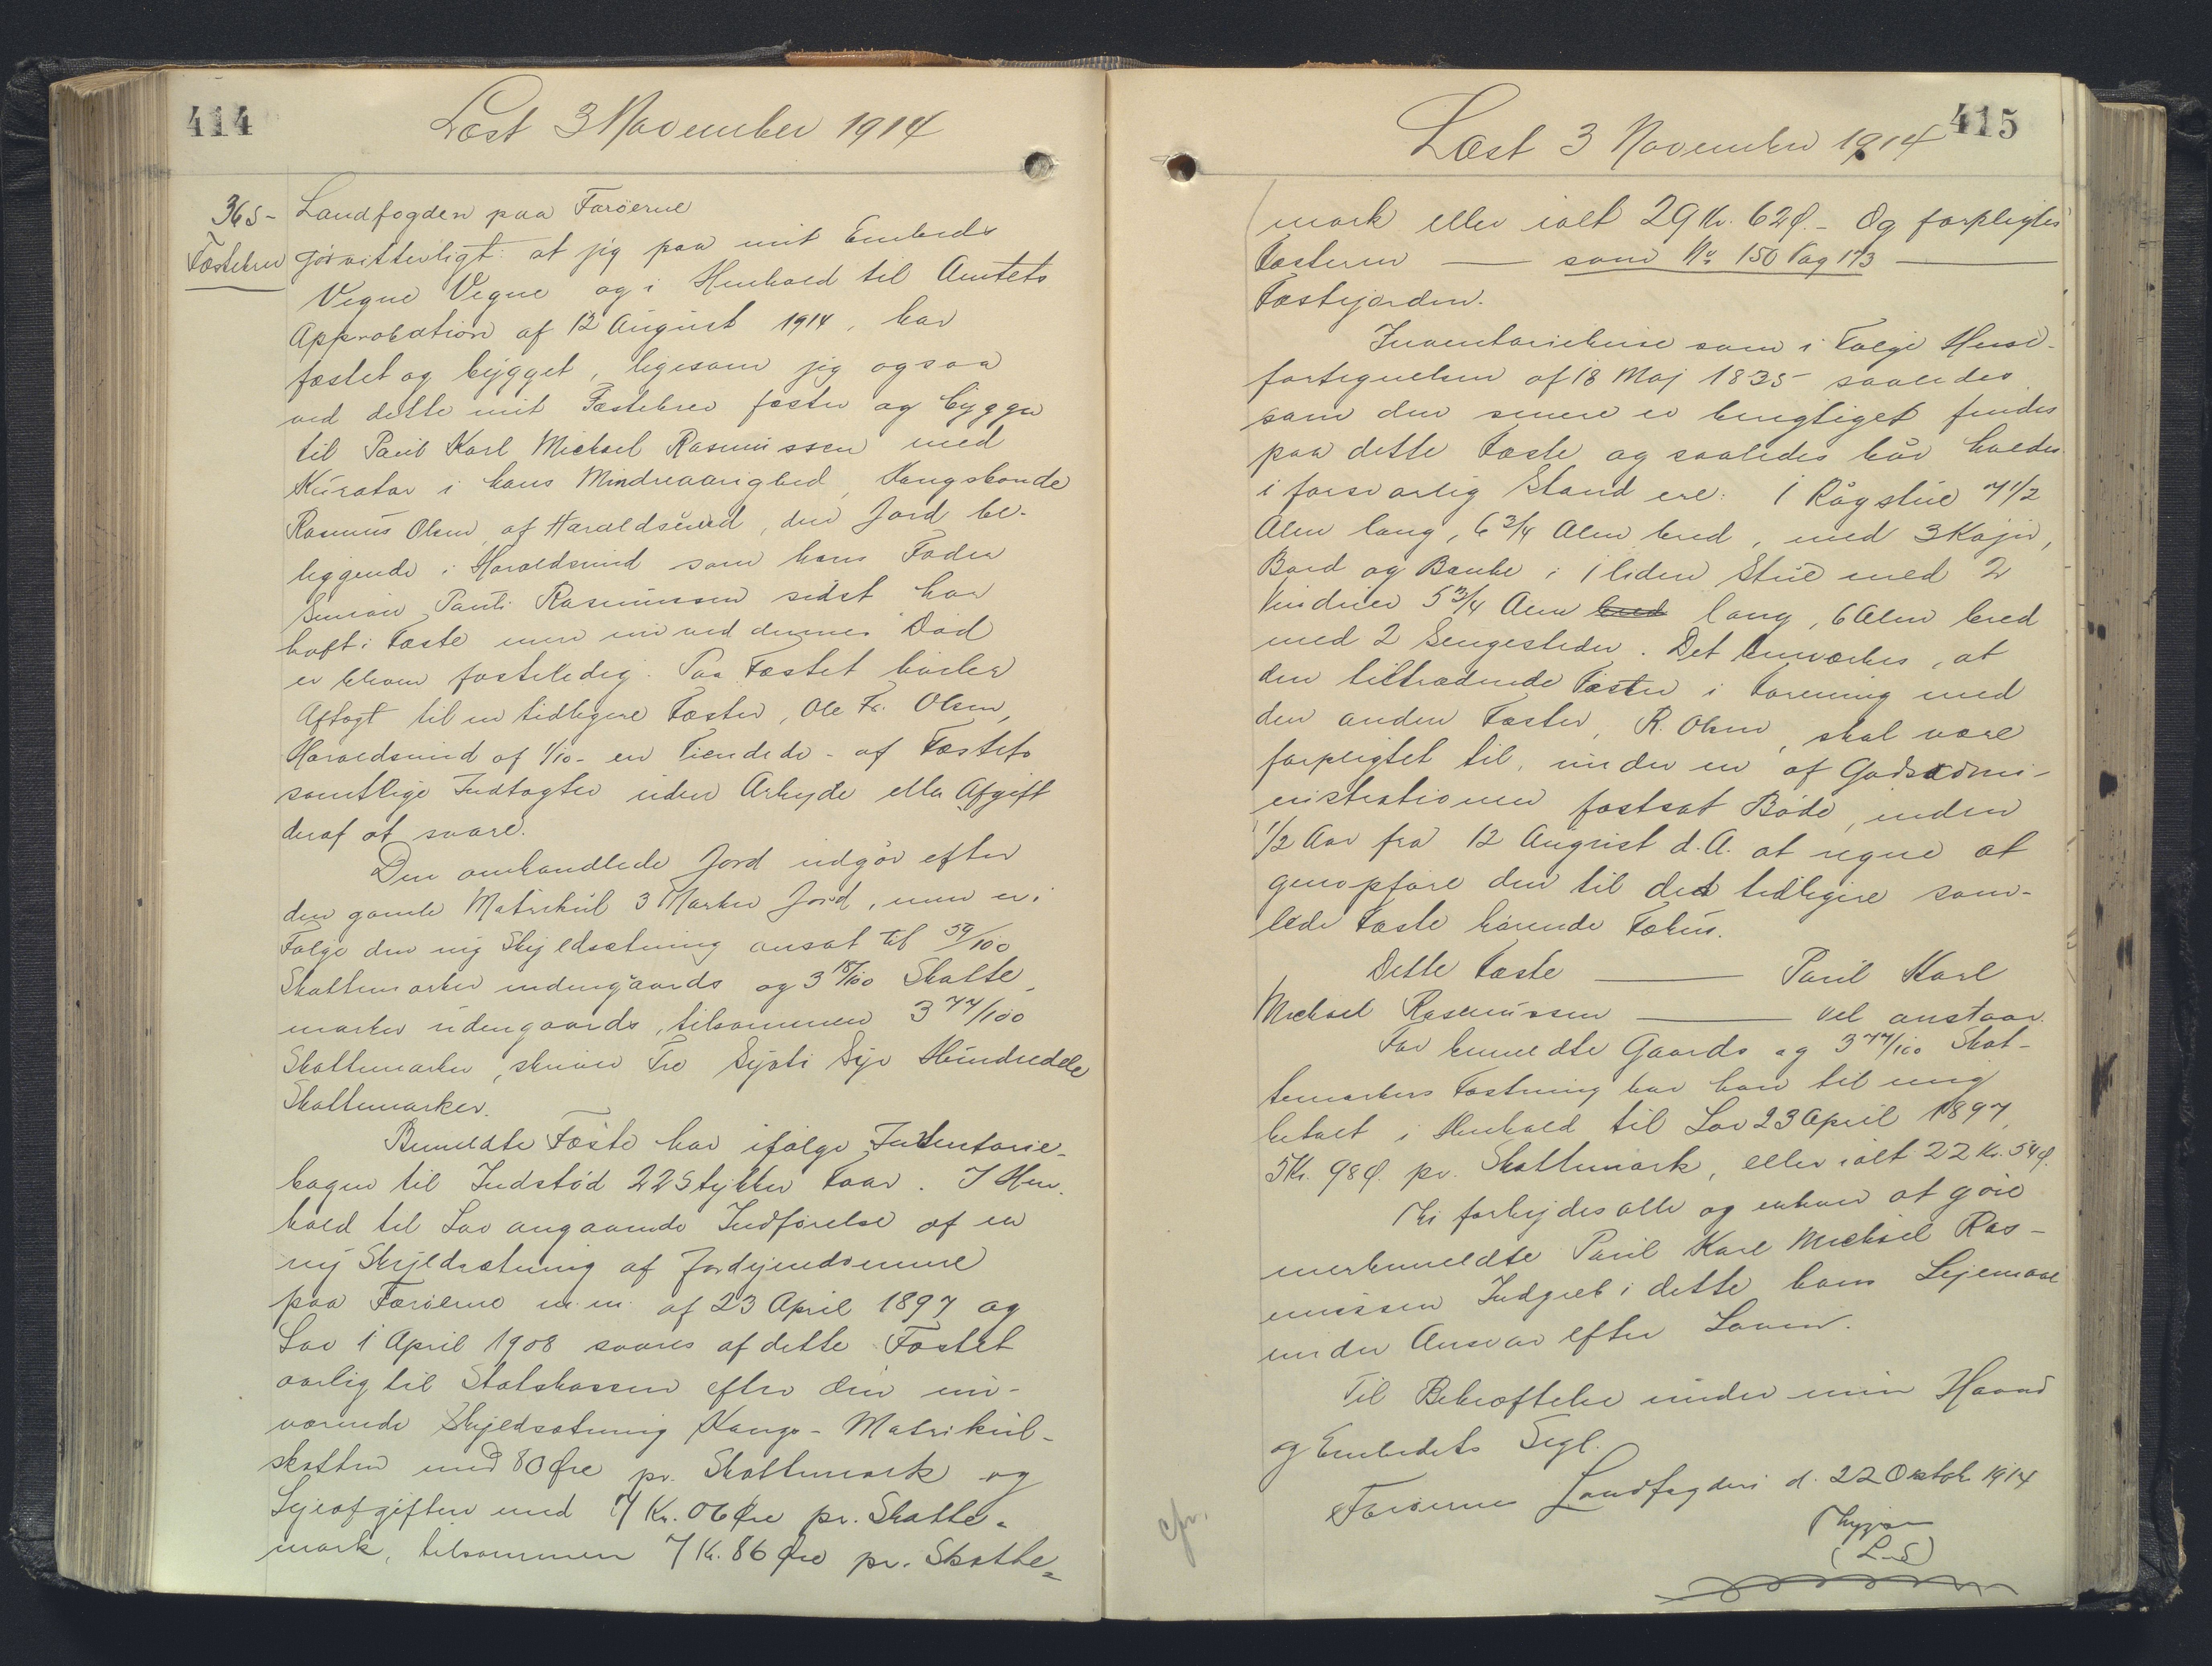 414
Læst 3 November 1914
365-
Fæstebrev
Landfogden paa Færöerne
gör vitterligt: at jeg paa mit Embeds
Vegne Vegne og i Henhold til Amtets
Approbation af 12 August 1914, har
fæstet og bygget, ligesom jeg ogsaa
ved dette mit Fæstebrev fæster og bygger
til Paul Karl Michael Rasmussen med
Kurator i hans Mindreaarighed, Kongsbonde
Rasmus Olsen af Haraldsund, den Jord be-
liggende i Haraldsund som hans Fader
Simon Pauli Rasmussen sidst har
haft i Fæste men nu ved dennes Död
er bleven fæsteledig. Paa Fæstet hviler
Aftægt til en tidligere Fæster, Ole Fr. Olsen,
Haraldsund af 1/10 - en Tiendede - af Fæstets
samtlige Indtægter uden Arbejde eller Afgift
deraf at svare.
Den omhandlede Jord udgör efter
den gamle Matrikul 3 Marker Jord, men er i
Fölge den ny Skyldsætning ansat til 59/100
Skattemarker indengaards og 3 18/100 Skatte-
marker udengaards, tilsammen 3 77/100
Skattemarker, skriver Tre Syv Hundrededele
Skattemarker.
Bemeldte Fæste har ifölge Inventarie-
bogen til Indstöd 22 Stykker Faar. I Hen-
hold til Lov angaaende Indförelse af en
ny Skyldsætning af Jordejendommene
paa Færöerne m.m. af 23 April 1897 og
Lov 1 April 1908 svares af dette Fæstet
aarlig til Statskassen efter den nu-
værende Skyldsætning Konge-Matrikul-
skatten med 80 Øre pr. Skattemark og
Lejeafgiften med 7 Kr. 06 Øre pr. Skatte-
mark, tilsammen 7 Kr. 86 Øre pr. Skatte-
415
Læst 3 November 1914
mark eller ialt 29 Kr. 62 Ø. - Og forpligtes
Fæsteren — som No 150 Pag 173 —
Fæstejorden.
Inventariehuse som i Fölge Huse-
fortegnelsen af 18 Maj 1835 saaledes
som den senere er berigtiget findes
paa dette Fæste og saaledes bör holdes
i forsvarlig Stand ere: 1 Rögstue 7 1/2
Alen lang, 6 3/4 Alen bred, med 3 Köjer,
Bord og Bænke; 1 liden Stue med 2
Vinduer 5 3/4 Alen bred lang, 6 Alen bred
med 2 Sengesteder. Det bemærkes, at
den tiltrædende Fæster i Forening med
den anden Fæster, R. Olsen, skal være
forpligtet til, under en af Godsadmi-
nistrationen fastsat Böde, inden
1/2 Aar fra 12 August d.A. at regne at
genopföre den til det tidligere sam-
lede Fæste hörende Fæhus.
Dette Fæste — Paul Karl
Michael Rasmussen — vel anstaar.
For bemeldte Gaards og 3 77/100 Skat-
temarkers Fæstning har han til mig
betalt i Henhold til Lov 23 April 1897,
5 Kr. 98 Ø. pr. Skattemark, eller ialt 22 Kr. 54 Ø.
Thi forbydes alle og enhver at göre
merbemeldte Paul Karl Michael Ras-
mussen Indgreb i dette hans Lejemaal
under Ansvar efter Loven.
Til Bekræftelse under min Haand
og Embedets Segl.
Færöernes Landfogderi d. 22 Oktob. 1914
(L.S)
cfr.